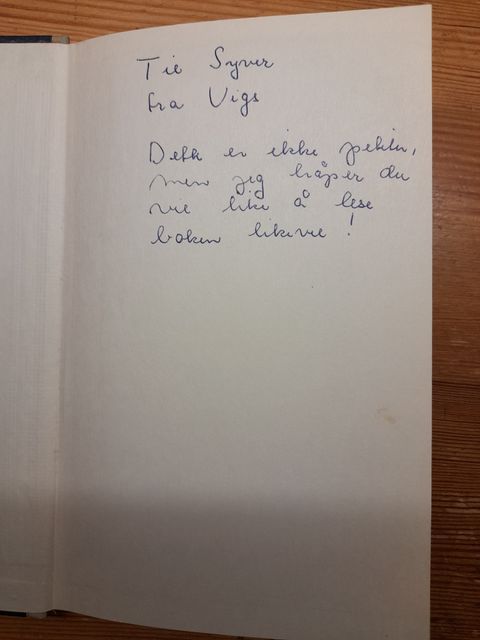 Til Syver
fra Vigs
Dette er ikke
men jeg håper du
vil like å lese
boken likevel!